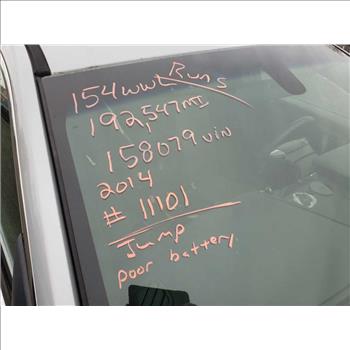 154WWL Runs
192,547MI
158079 VIN
2014
# 11101
Jump
poor battery